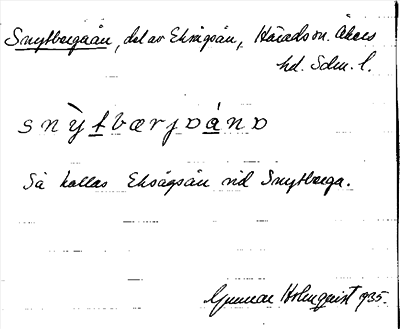 Snytbergaån, del av Eksågsån, Härads sn. Åkers
hd. Sdm. l.
snỳtbærjɷánɷ
Så kallas Eksågsån vid Snytberga.
Gunnar Holmquist 1935.